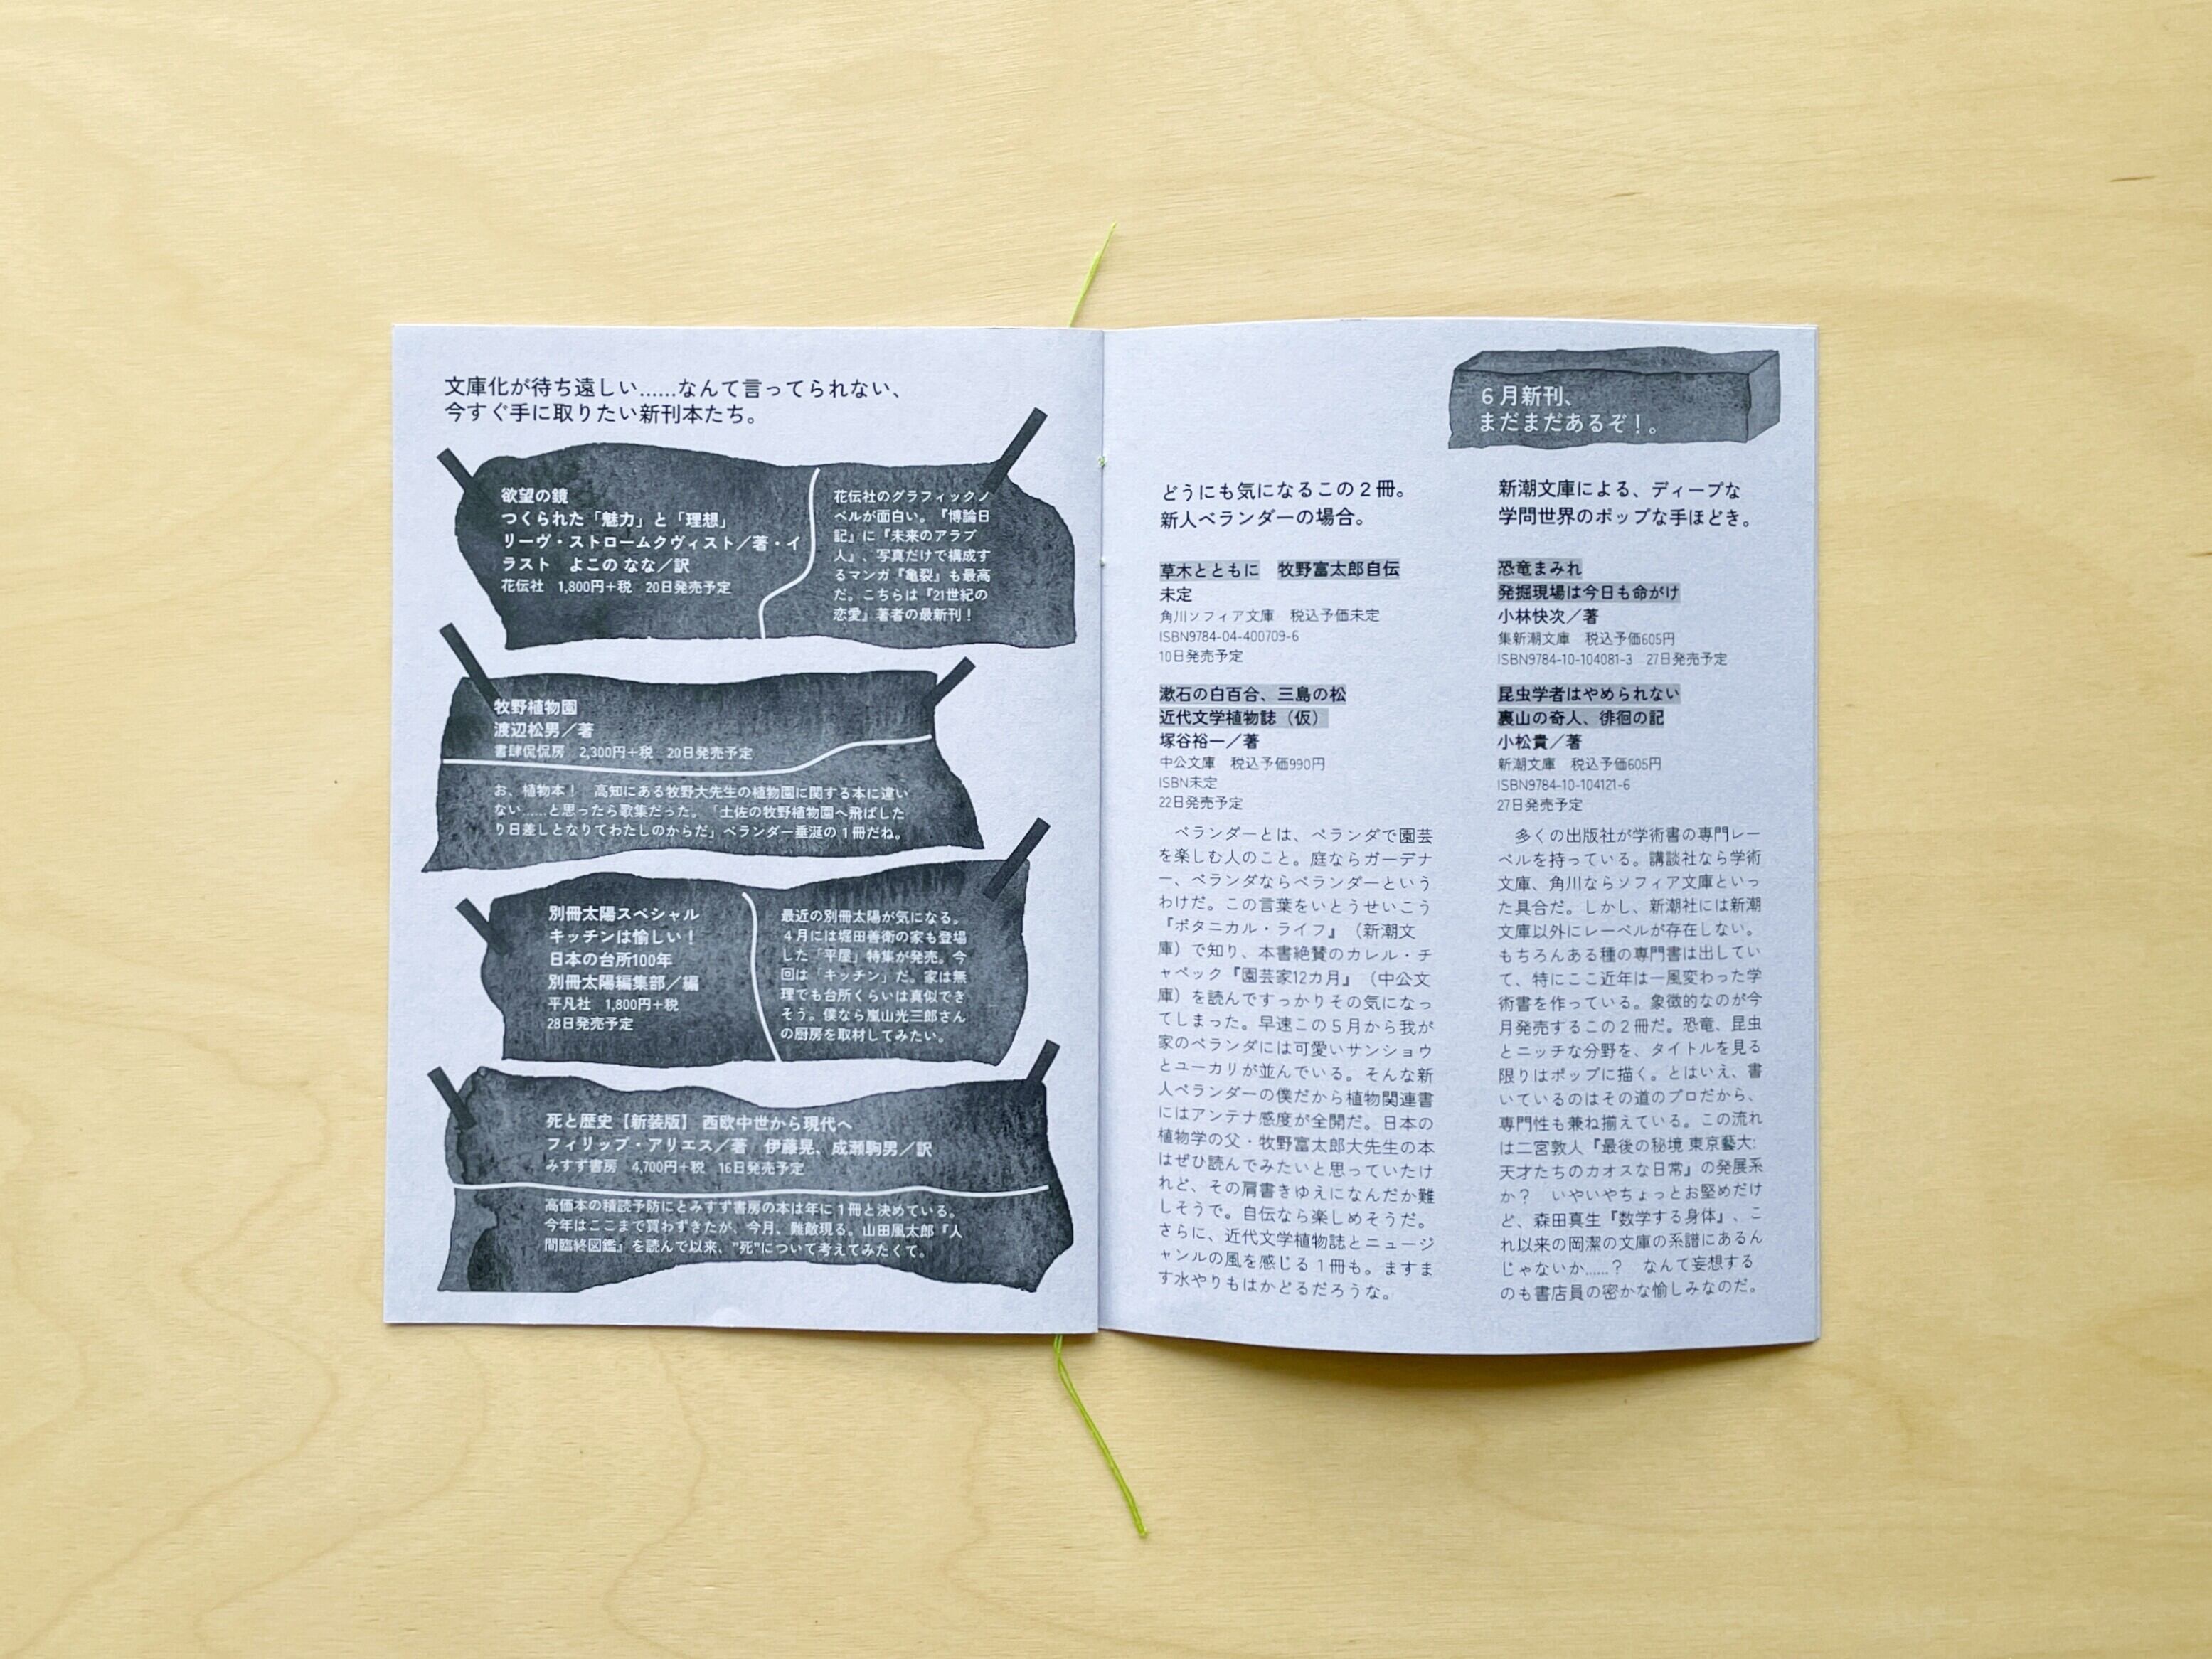 文庫化が待ち遠しい……なんて言ってられない、
今すぐ手に取りたい新刊本たち。
欲望の鏡
つくられた「魅力」と「理想」
リーヴ・ストロームクヴィスト／著・イ
ラスト　よこの なな／訳
花伝社　1,800円＋税　20日発売予定
花伝社のグラフィックノ
ベルが面白い。『博論日
記』に『未来のアラブ
人』、写真だけで構成す
るマンガ『亀裂』も最高
だ。こちらは『21世紀の
恋愛』著者の最新刊！
牧野植物園
渡辺松男／著
書肆侃侃房　2,300円＋税　20日発売予定
お、植物本！　高知にある牧野大先生の植物園に関する本に違い
ない……と思ったら歌集だった。「土佐の牧野植物園へ飛ばした
り日差しとなりてわたしのからだ」ベランダー垂涎の１冊だね。
別冊太陽スペシャル
キッチンは愉しい！
日本の台所100年
別冊太陽編集部／編
平凡社　1,800円＋税
28日発売予定
最近の別冊太陽が気になる。
４月には堀田善衛の家も登場
した「平屋」特集が発売。今
回は「キッチン」だ。家は無
理でも台所くらいは真似でき
そう。僕なら嵐山光三郎さん
の厨房を取材してみたい。
死と歴史【新装版】 西欧中世から現代へ
フィリップ・アリエス／著　伊藤晃、成瀬駒男／訳
みすず書房　4,700円＋税　16日発売予定
高価本の積読予防にとみすず書房の本は年に１冊と決めている。
今年はここまで買わずきたが、今月、難敵現る。山田風太郎『人
間臨終図鑑』を読んで以来、”死”について考えてみたくて。
６月新刊、
まだまだあるぞ！。
どうにも気になるこの２冊。
新人ベランダーの場合。
草木とともに　牧野富太郎自伝
未定
角川ソフィア文庫　税込予価未定
ISBN9784-04-400709-6
10日発売予定
漱石の白百合、三島の松
近代文学植物誌（仮）
塚谷裕一／著
中公文庫　税込予価990円
ISBN未定
22日発売予定
ベランダーとは、ベランダで園芸
を楽しむ人のこと。庭ならガーデナ
ー、ベランダならベランダーという
わけだ。この言葉をいとうせいこう
『ボタニカル・ライフ』（新潮文
庫）で知り、本書絶賛のカレル・チ
ャペック『園芸家12カ月』（中公文
庫）を読んですっかりその気になっ
てしまった。早速この５月から我が
家のベランダには可愛いサンショウ
とユーカリが並んでいる。そんな新
人ベランダーの僕だから植物関連書
にはアンテナ感度が全開だ。日本の
植物学の父・牧野富太郎大先生の本
はぜひ読んでみたいと思っていたけ
れど、その肩書きゆえになんだか難
しそうで。自伝なら楽しめそうだ。
さらに、近代文学植物誌とニュージ
ャンルの風を感じる１冊も。ますま
す水やりもはかどるだろうな。
新潮文庫による、ディープな
学問世界のポップな手ほどき。
恐竜まみれ
発掘現場は今日も命がけ
小林快次／著
集新潮文庫　税込予価605円
ISBN9784-10-104081-3　27日発売予定
昆虫学者はやめられない
裏山の奇人、徘徊の記
小松貴／著
新潮文庫　税込予価605円
ISBN9784-10-104121-6
27日発売予定
多くの出版社が学術書の専門レー
ベルを持っている。講談社なら学術
文庫、角川ならソフィア文庫といっ
た具合だ。しかし、新潮社には新潮
文庫以外にレーベルが存在しない。
もちろんある種の専門書は出してい
て、特にここ近年は一風変わった学
術書を作っている。象徴的なのが今
月発売するこの２冊だ。恐竜、昆虫
とニッチな分野を、タイトルを見る
限りはポップに描く。とはいえ、書
いているのはその道のプロだから、
専門性も兼ね揃えている。この流れ
は二宮敦人『最後の秘境 東京藝大:
天才たちのカオスな日常』の発展系
か？　いやいやちょっとお堅めだけ
ど、森田真生『数学する身体』、こ
れ以来の岡潔の文庫の系譜にあるん
じゃないか……？　なんて妄想する
のも書店員の密かな愉しみなのだ。